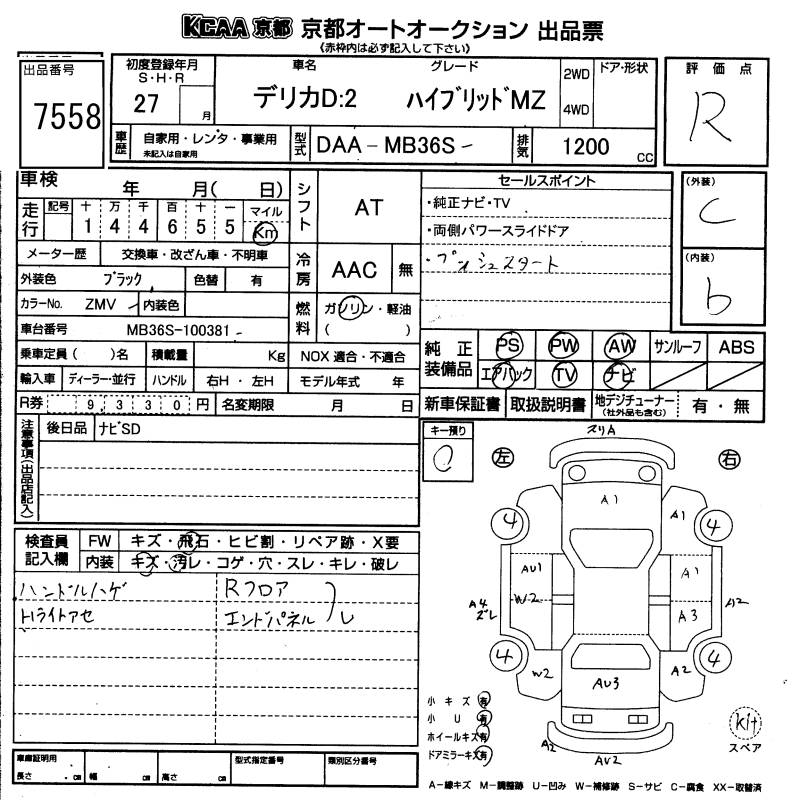 KCAA 京都 京都オートオークション 出品票
《赤枠内は必ず記入して下さい》
出品番号
7558
初度登録年月
S・H・R
27 月
車名
デリカD:2
グレード
ハイブリッドMZ
2WD
4WD
ドア・形状
評価点
R
車歴
自家用・レンタ・事業用
未記入は自家用
型式
DAA-MB36S-
排気
1200 cc
車検 年 月( 日)
走行
記号 十 万 千 百 十 一
1 4 4 6 5 5
マイル
Km
シフト
AT
セールスポイント
・純正ナビ・TV
・両側パワースライドドア
・プッシュスタート
(外装)
C
(内装)
b
メーター歴
交換車・改ざん車・不明車
冷房
AAC 無
外装色 ブラック 色替 有
カラーNo. ZMV 内装色
燃料
ガソリン・軽油
( )
車台番号 MB36S-100381-
乗車定員( )名 積載量 Kg NOX 適合・不適合
輸入車 ディーラー・並行 ハンドル 右H・左H モデル年式 年
R券 9,330円 名変期限 月 日
純正装備品
PS PW AW サンルーフ ABS
エアバック TV ナビ
新車保証書 取扱説明書 地デジチューナー(社外品も含む) 有・無
注意事項(出品店記入)
後日品 ナビSD
キー預り
検査員記入欄
FW キズ・飛石・ヒビ割・リペア跡・X要
内装 キズ・汚レ・コゲ・穴・スレ・キレ・破レ
ハンドルハゲ
Hライトアセ
Rフロア
エンドパネル
左 右
スリA
A1
A1
4 4
AU1
A1
W2
A4
ズレ
A3
A2
4 4
W2
AU3
A2
A2
AU2
小キズ 有
小U 有
ホイールキズ 有
ドアミラーキズ 有
kit
スペア
車庫証明用
長さ . cm 幅 cm 高さ cm
型式指定番号
類別区分番号
A-線キズ M-調整跡 U-凹み W-補修跡 S-サビ C-腐食 XX-取替済